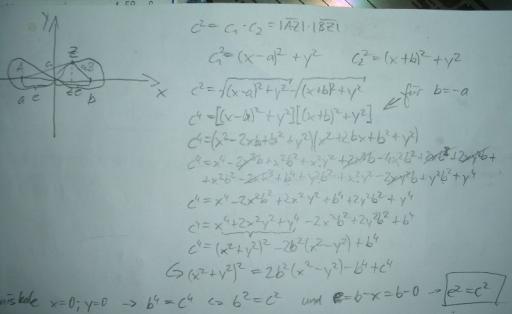 c² = c₁ · c₂ = |AZ| · |BZ|
c₁² = (x-a)² + y² c₂² = (x+b)² + y²
c² = √((x-a)² + y²) · √((x+b)² + y²)
für b = -a
c⁴ = [(x-b)² + y²][(x+b)² + y²]
c⁴ = (x² - 2xb + b² + y²)(x² + 2bx + b² + y²)
c⁴ = x⁴ - 2x²b² + 2x²y² + b⁴ + 2y²b² + y⁴
c⁴ = x⁴ + 2x²y² + y⁴ - 2x²b² + 2y²b² + b⁴
c⁴ = (x² + y²)² - 2b²(x² - y²) + b⁴
↪ (x² + y²)² = 2b²(x² - y²) - b⁴ + c⁴
x=0; y=0 → b⁴ = c⁴ ⇔ b² = c² und e = b-x = b-0 → e² = c²
Y
X
Z
a
e
b